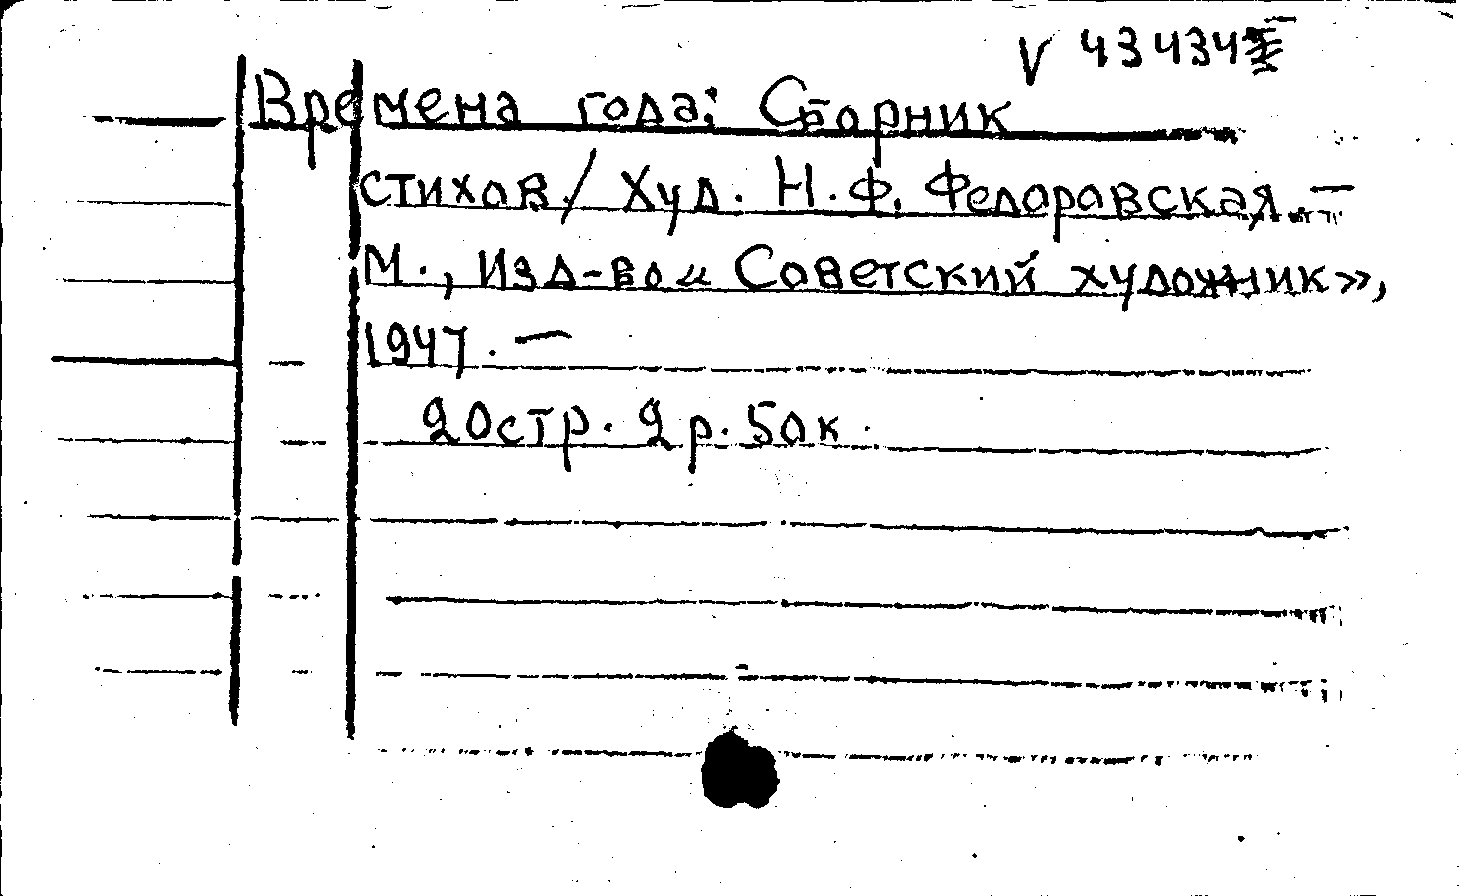 V 43434
Времена года: Сборник
стихов./ Худ. Н.Ф. Федоровская. —
М., Изд-во « Советский художник»,
1947. —
20стр. 2р. 50к.